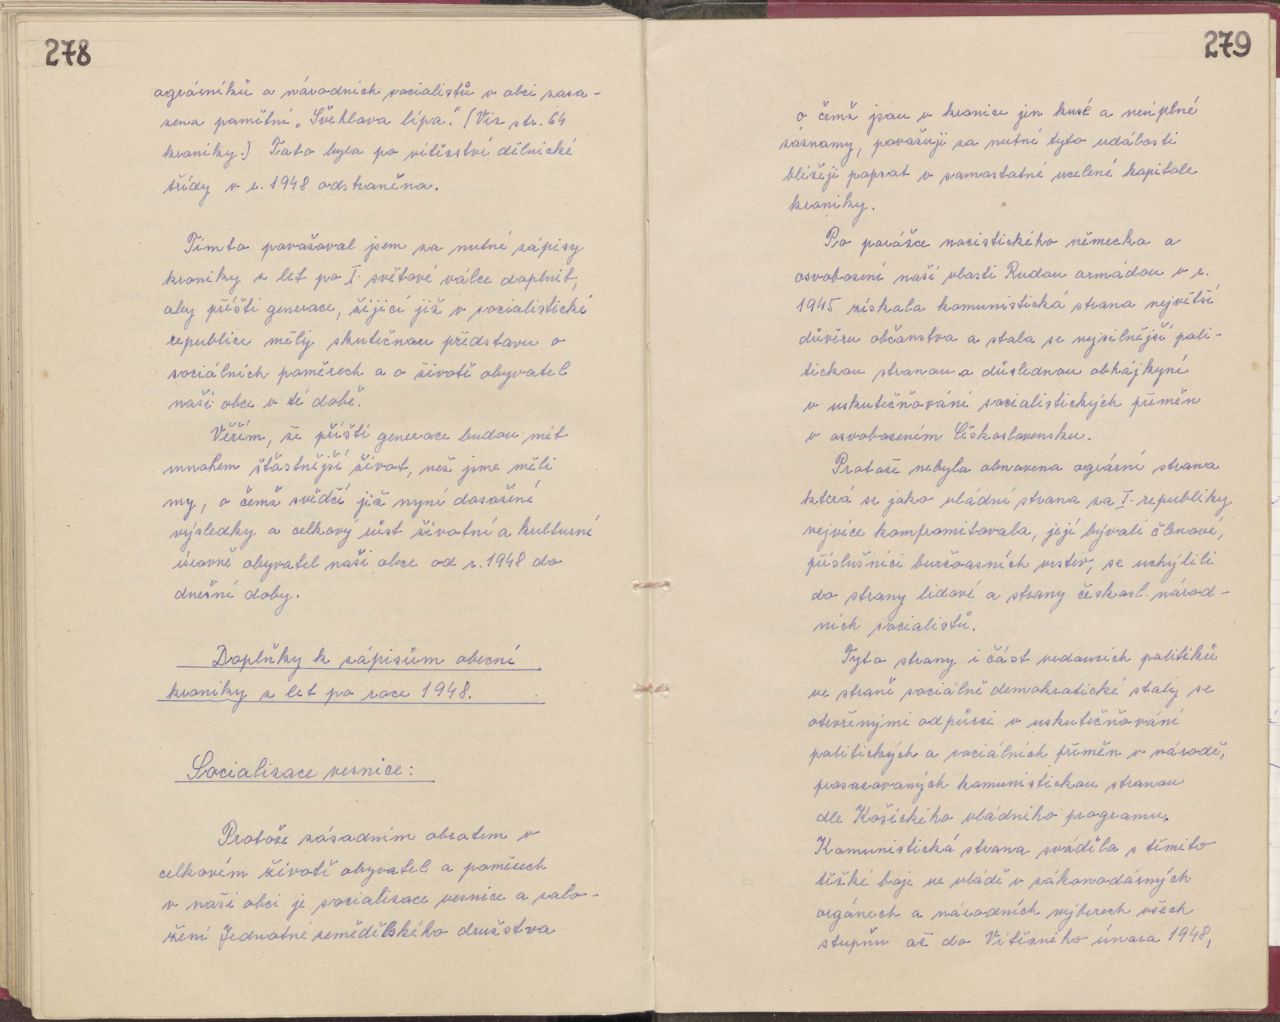 278
agrárníků a národních socialistů v obci zasa-
zena pamětní „Švehlova lípa." (Viz str. 64
kroniky.) Tato byla po vítězství dělnické
třídy v r. 1948 odstraněna.
Tímto považoval jsem za nutné zápisy
kroniky z let po I. světové válce doplnit,
aby příští generace, žijící již v socialistické
republice měly skutečnou představu o
sociálních poměrech a o životě obyvatel
naší obce v té době.
Věřím, že příští generace budou mít
mnohem šťastnější život, než jsme měli
my, o čemž svědčí již nyní dosažené
výsledky a celkový růst životní a kulturní
úrovně obyvatel naší obce od r. 1948 do
dnešní doby.
Doplňky k zápisům obecní
kroniky z let po roce 1948.
Socialisace vesnice:
Protože zásadním obratem v
celkovém životě obyvatel a poměrech
v naší obci je socialisace vesnice a zalo-
žení Jednotné zemědělského družstva
279
o čemž jsou v kronice jen kusé a neúplné
záznamy, považuji za nutné tyto události
blížeji popsat v samostatné ucelené kapitole
kroniky.
Po porážce nacistického německa a
osvobození naší vlasti Rudou armádou v r.
1945 získala komunistická strana největší
důvěru občanstva a stala se nejsilnější poli-
tickou stranou a důslednou obhájkyní
v uskutečňování socialistických přeměn
v osvobozeném Československu.
Protože nebyla obnovena agrární strana
která se jako vládní strana za I. republiky
nejvíce kompromitovala, její bývalí členové,
příslušníci buržoasních vrstev, se uchýlili
do strany lidové a strany českosl. národ-
ních socialistů.
Tyto strany i část vedoucích politiků
ve straně sociálně demokratické staly se
otevřenými odpůrci v uskutečňování
politických a sociálních přeměn v národě,
prosazovaných komunistickou stranou
dle Košického vládního programu.
Komunistická strana sváděla s těmito
těžké boje ve vládě v zákonodárných
orgánech a národních výborech všech
stupňů až do Vítězného února 1948,